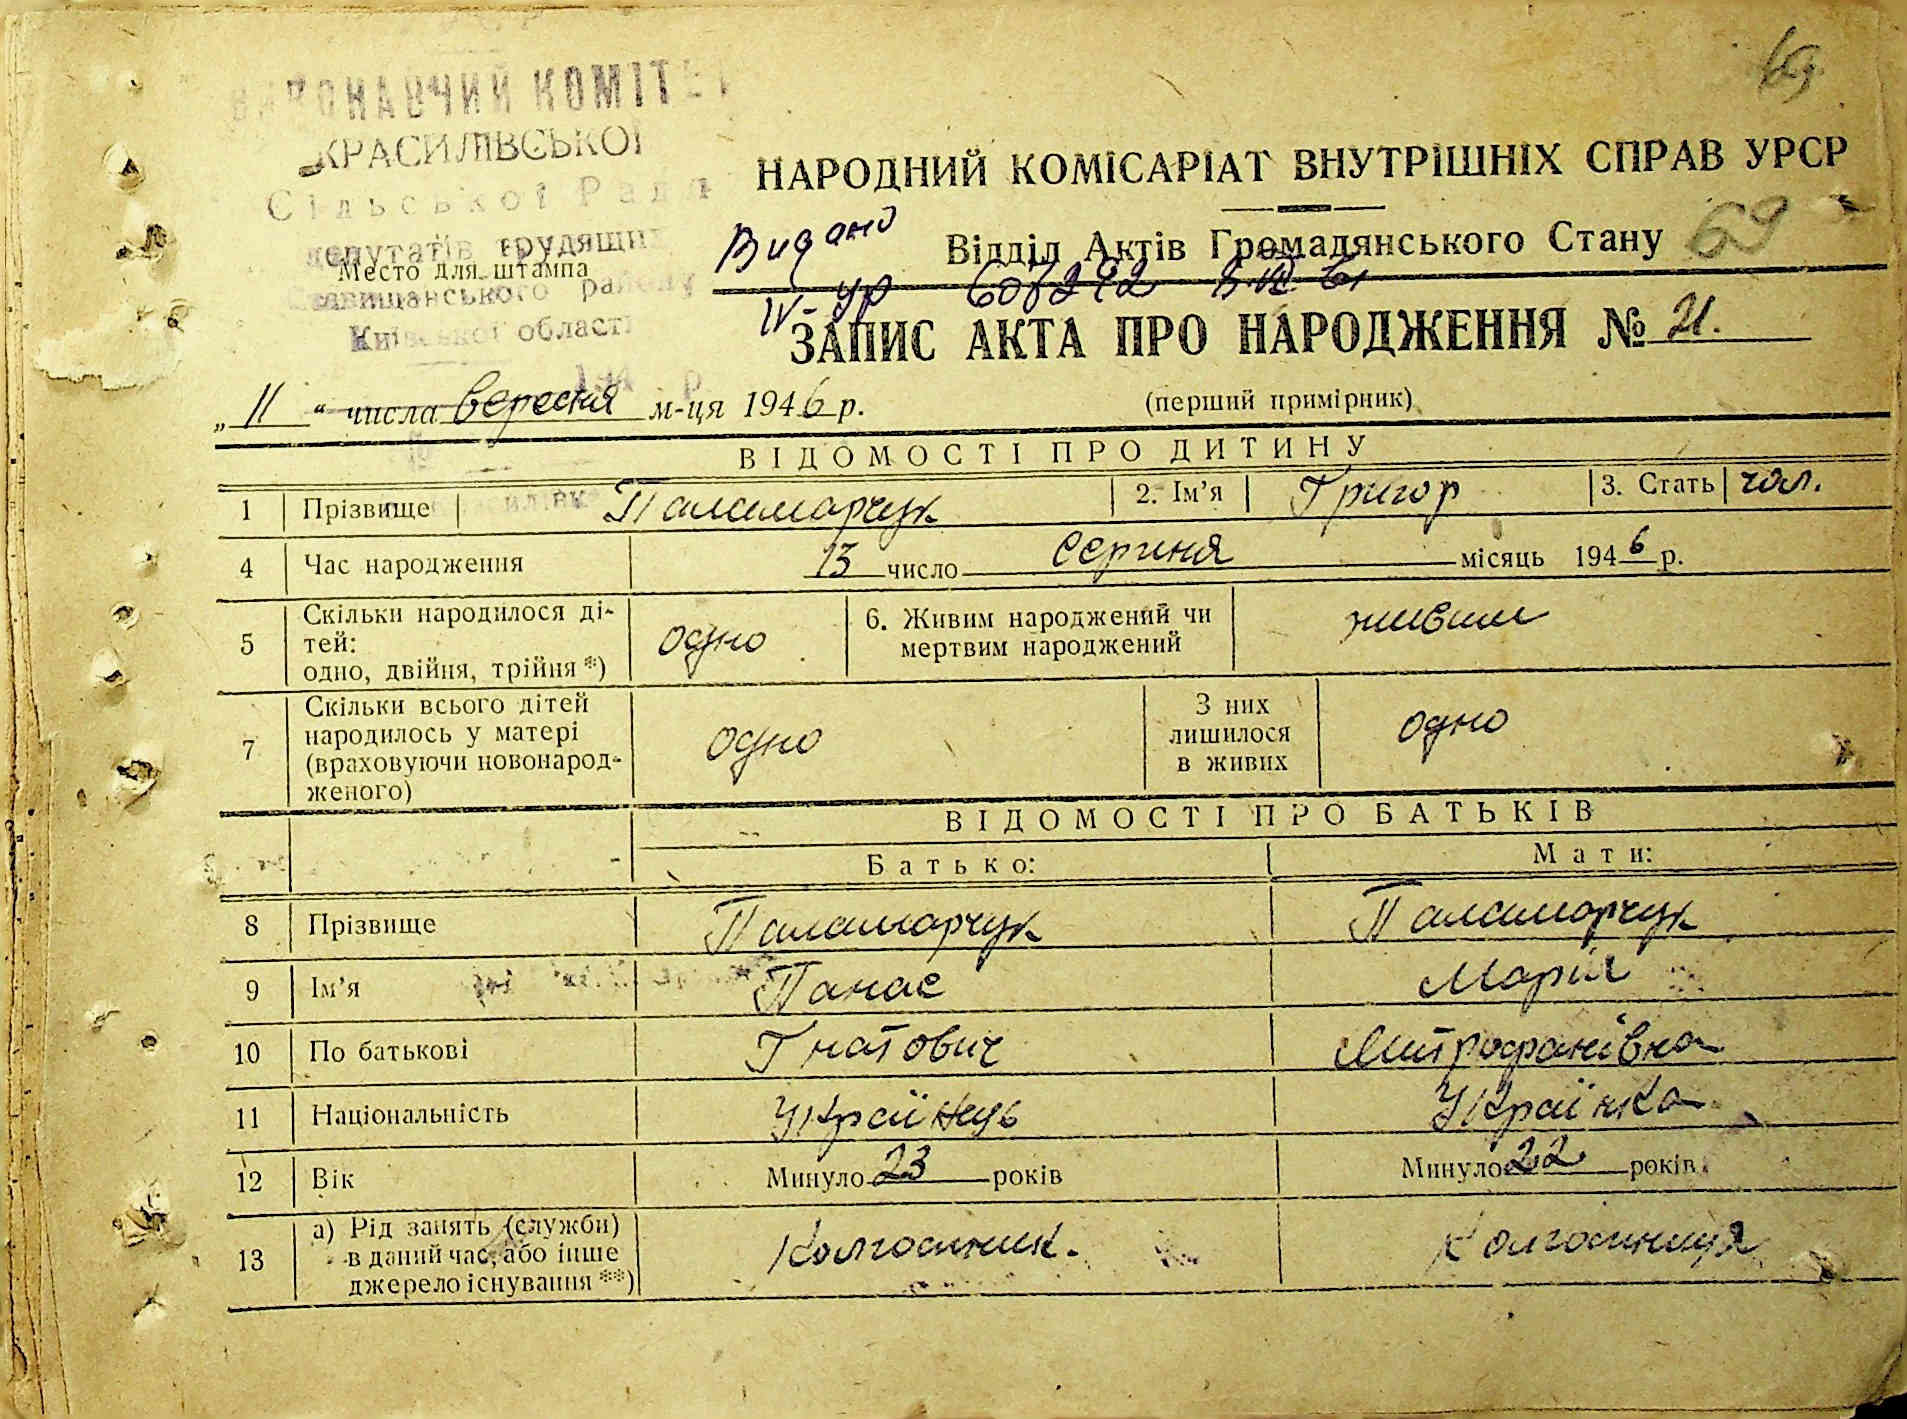 ВИКОНАВЧИЙ КОМІТЕТ
КРАСИЛІВСЬКОЇ
Сільської Ради
депутатів трудящих
Место для штампа
Ставищанського району
Київської області
194 р.
69
НАРОДНИЙ КОМІСАРІАТ ВНУТРІШНІХ СПРАВ УРСР
Відділ Актів Громадянського Стану
69
Видано
IV-УР
ЗАПИС АКТА ПРО НАРОДЖЕННЯ № 21.
„11“ числа вересня м-ця 1946 р.
(перший примірник)
ВІДОМОСТІ ПРО ДИТИНУ
1 Прізвище Паламарчук 2. Ім'я Григор 3. Стать чол.
4 Час народження 13 число серпня місяць 1946 р.
5 Скільки народилося ді-
тей:
одно, двійня, трійня *) одно
6. Живим народжений чи
мертвим народжений живим
7 Скільки всього дітей
народилось у матері
(враховуючи новонарод-
женого) одно
З них
лишилося
в живих одно
ВІДОМОСТІ ПРО БАТЬКІВ
Батько: Мати:
8 Прізвище Паламарчук Паламарчук
9 Ім'я Панас Марія
10 По батькові Гнатович Митрофанівна
11 Національність Українець Українка
12 Вік Минуло 23 років Минуло 22 років
13 а) Рід занять (служби)
в даний час, або інше
джерело існування **) Колгоспник. Колгоспниця